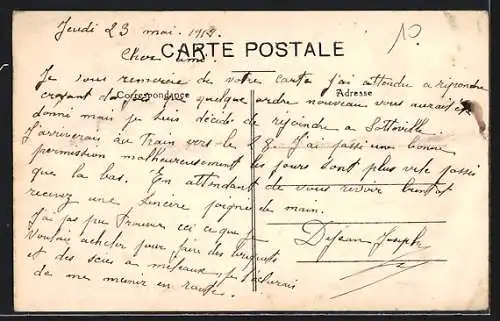 Jeudi 23 mai 191
Cher ami.
CARTE POSTALE
Correspondance
Adresse
Je vous remercie de votre carte j'ai attendu a repondre
croyant que quelque ordre nouveau vous aurait été
donné mais je suis décidé de rejoindre a Sotteville.
J'arriverais au train vers le 28. J'ai passé une bonne
permission malheureusement les jours sont plus vite passé
que la bas. En attendant de vous revoir bientot
recevez une sincère poignée de main.
J'ai pas pu trouver ici ce que je
voulais acheter pour faire des briquets
et des scies a meteaux, je
de me munir en route.
Dejean Joseph